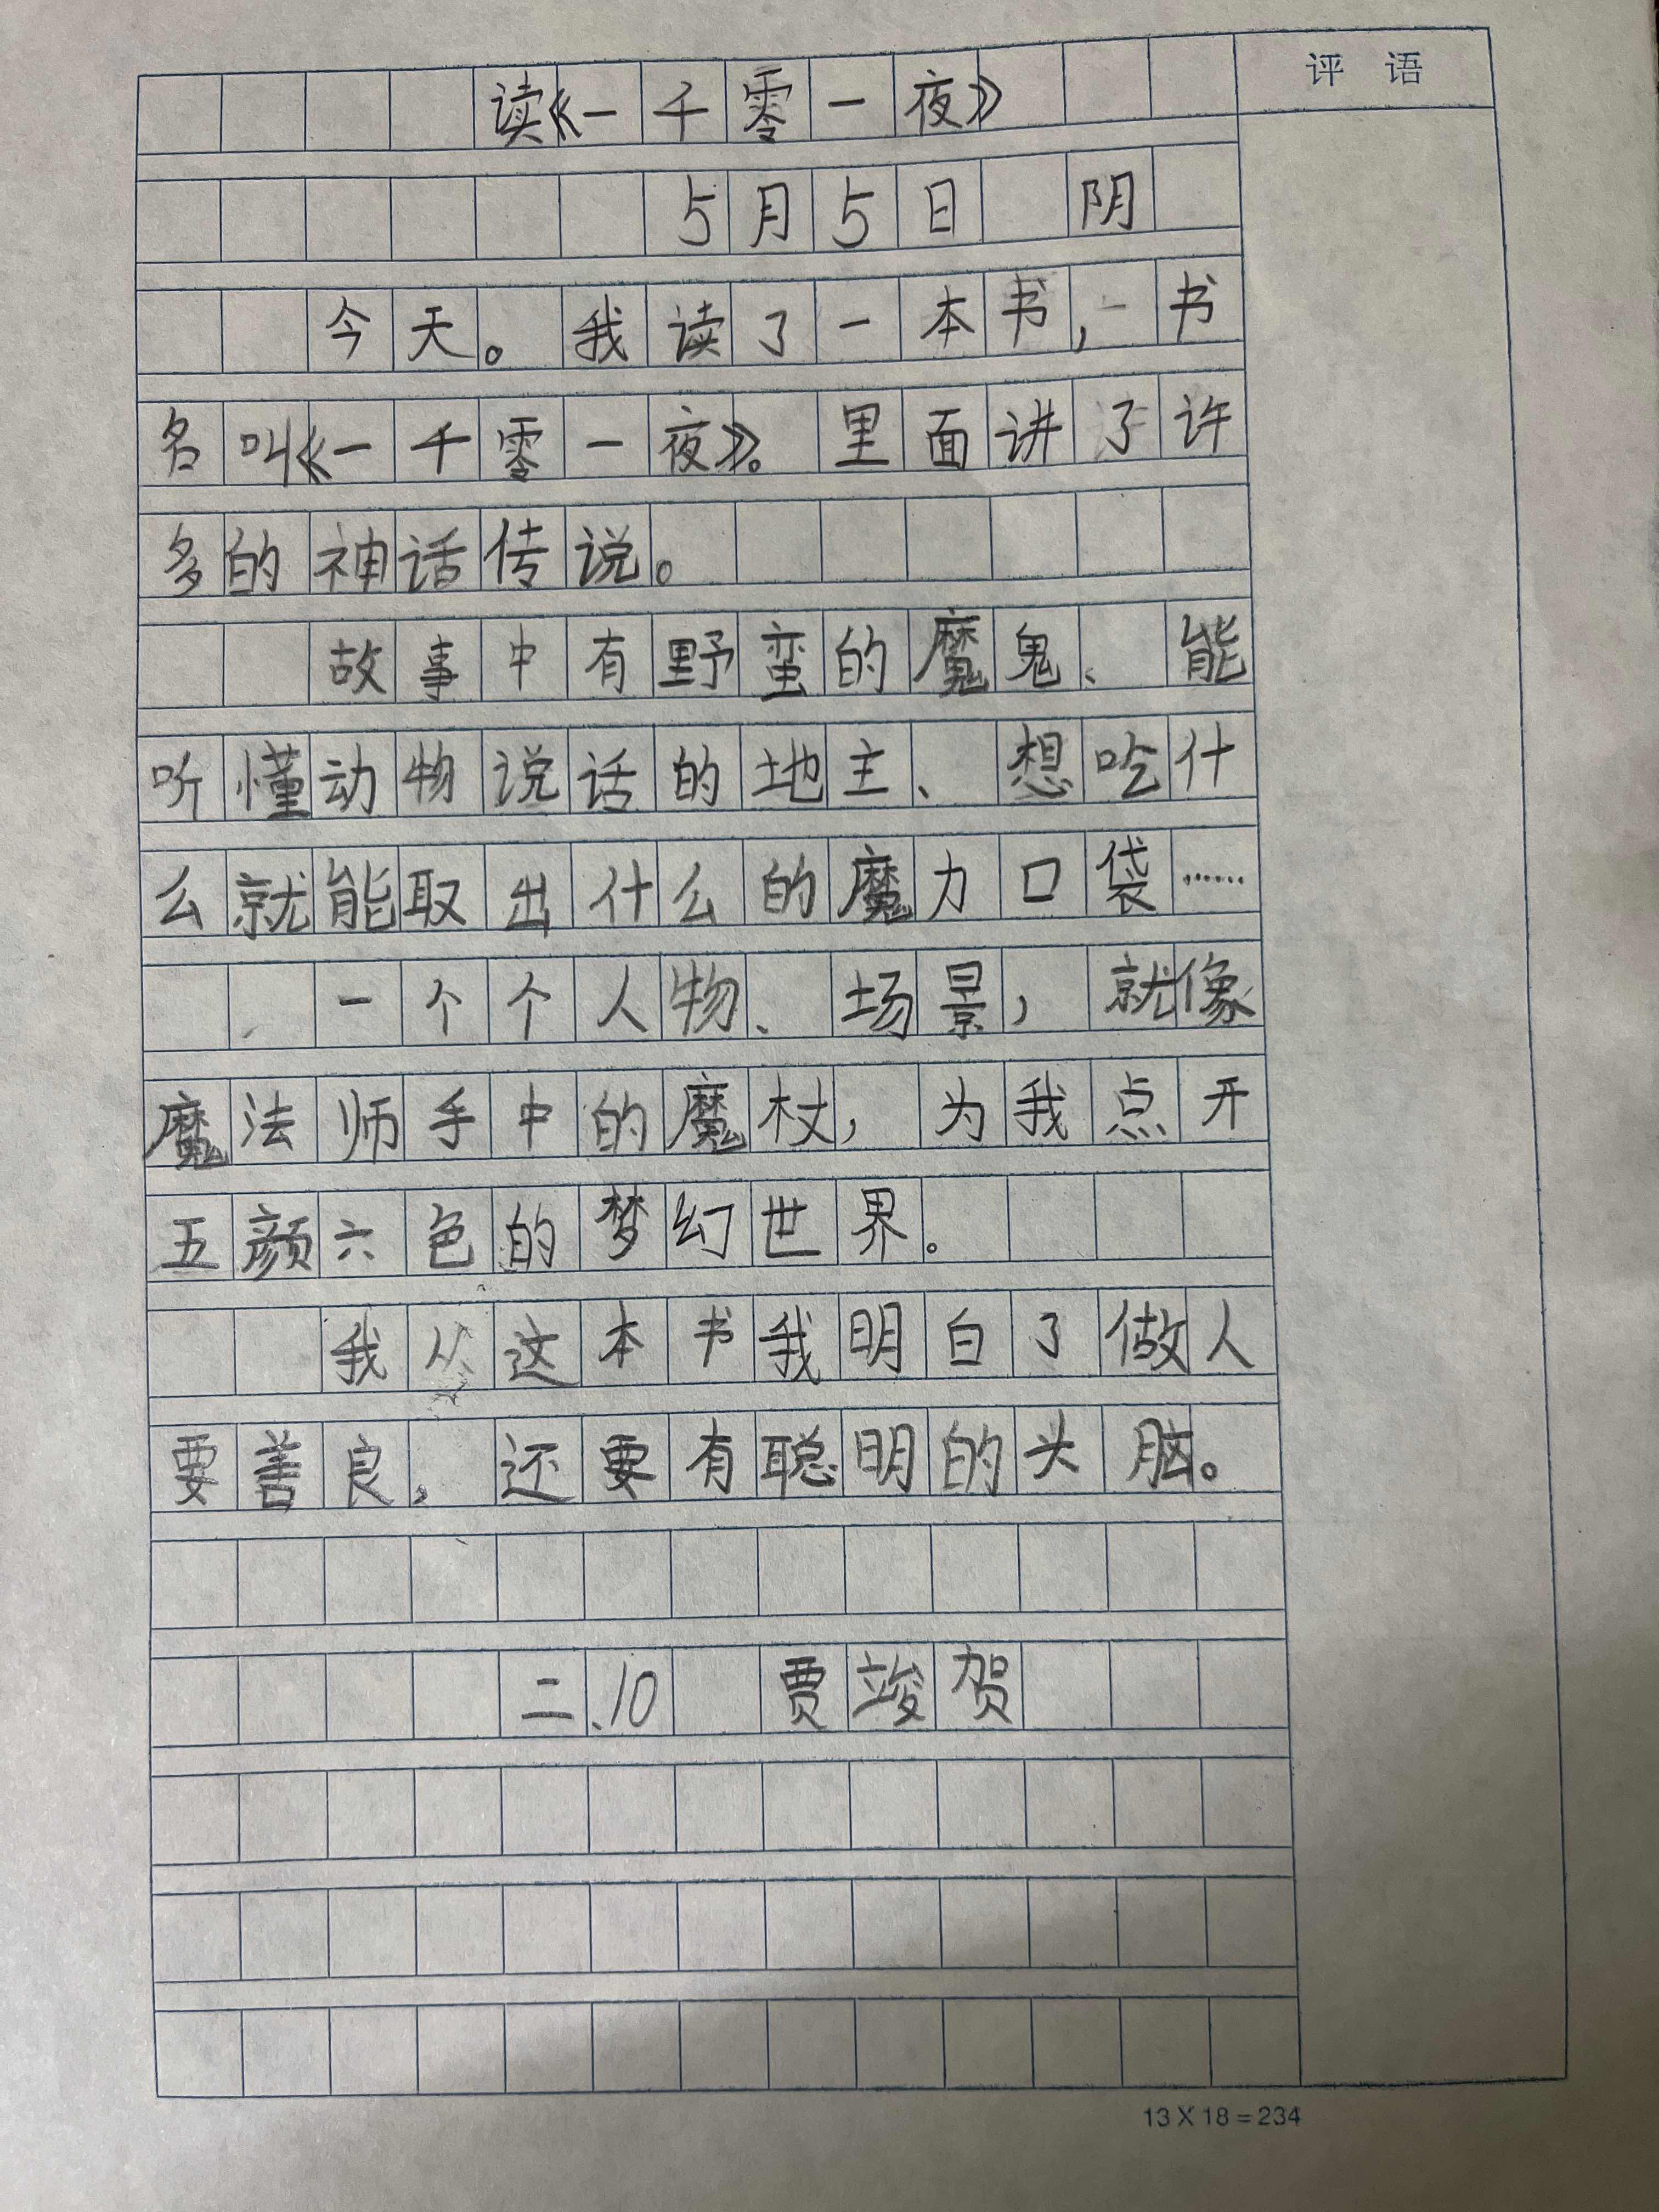 读《一千零一夜》
评 语
5月5日 阴
今天。我读了一本书,书
名叫《一千零一夜》。里面讲了许
多的神话传说。
故事中有野蛮的魔鬼、能
听懂动物说话的地主、想吃什
么就能取出什么的魔力口袋……
一个个人物、场景,就像
魔法师手中的魔杖,为我点开
五颜六色的梦幻世界。
我从这本书我明白了做人
要善良,还要有聪明的头脑。
二、10 贾竣贺
13×18=234